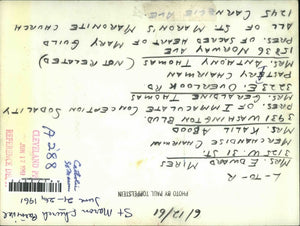 L-TO-R
MRS. EDWARD MIRES
3121 W. 31 ST.
MERCHANDISE CHAIRMAN
MRS. KALIL ABOOD
3931 WASHINGTON BLVD
PRES. OF IMMACULATE CONCEPTION SODALITY
MRS. GERALDINE THOMAS
3225 E. OVERLOOK RD
PASTRY CHAIRMAN
MRS. ANTHONY THOMAS (NOT RELATED)
15836 NORWAY AVE
PRES. OF SACRED HEART OF MARY GUILD
ALL OF ST. MARON'S MARONITE CHURCH
1245 CARNEGIE AVE
PHOTO BY PAUL TOPPELSTEIN
6/12/61
St Maron Church Carnival
June 21-24, 1961
A 288
CLEVELAND
JUN 17 1961
REFERENCE